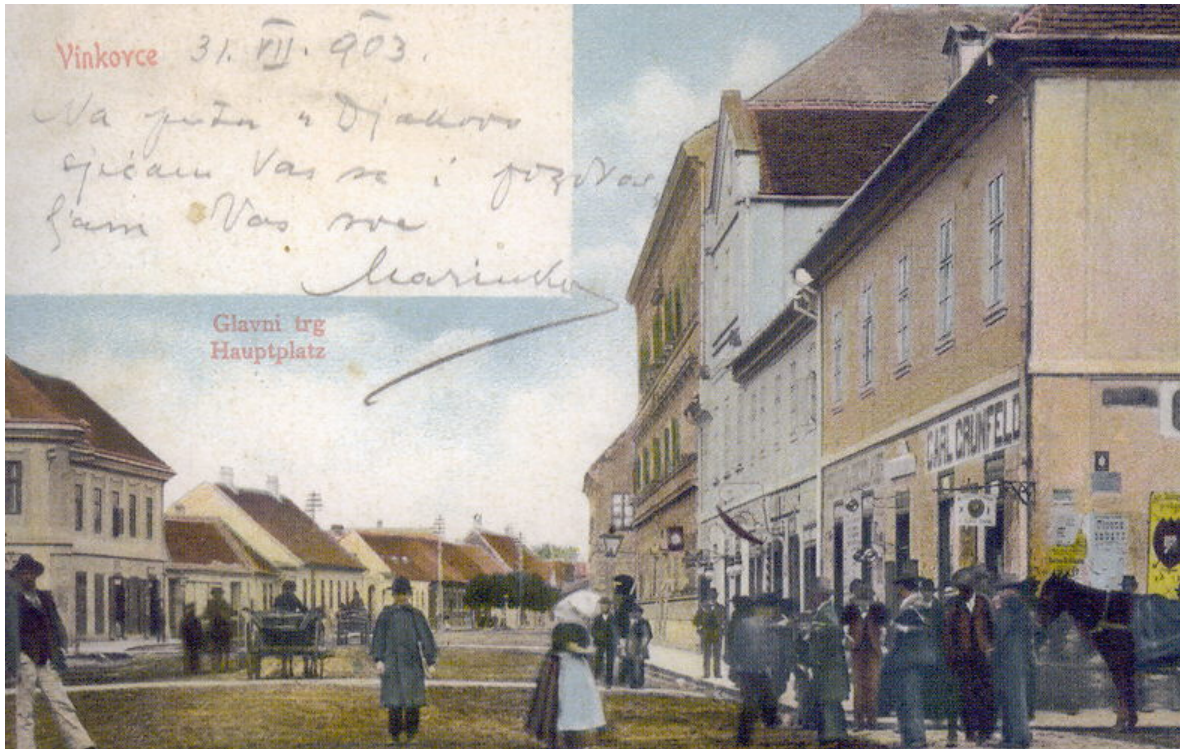 Vinkovce 31. VII. 903.
Na putu u Djakovo
sjećam Vas se i pozdrav
ljam Vas sve
Marinko
Glavni trg
Hauptplatz
CARL GRÜNFELD